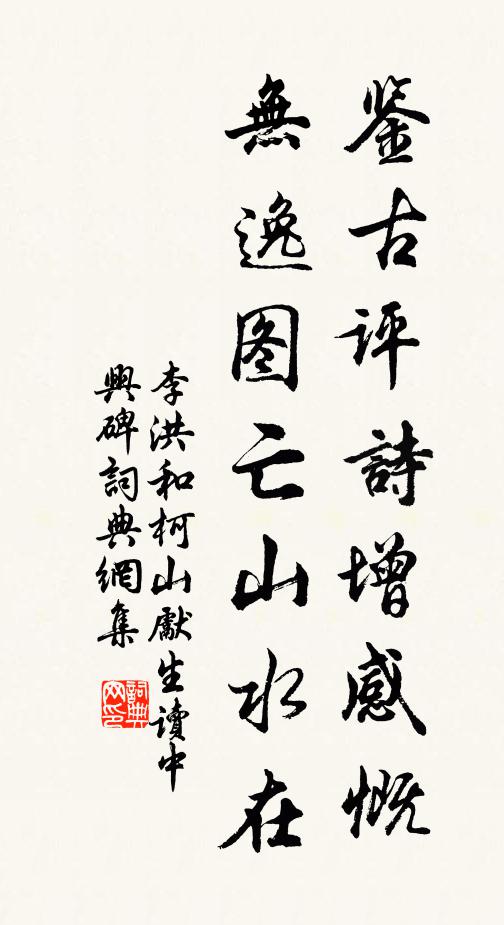 鉴古评詩增感慨
無逸图亡山水在
李洪和柯山獻生讀中
興碑詞典網集
詞典网印